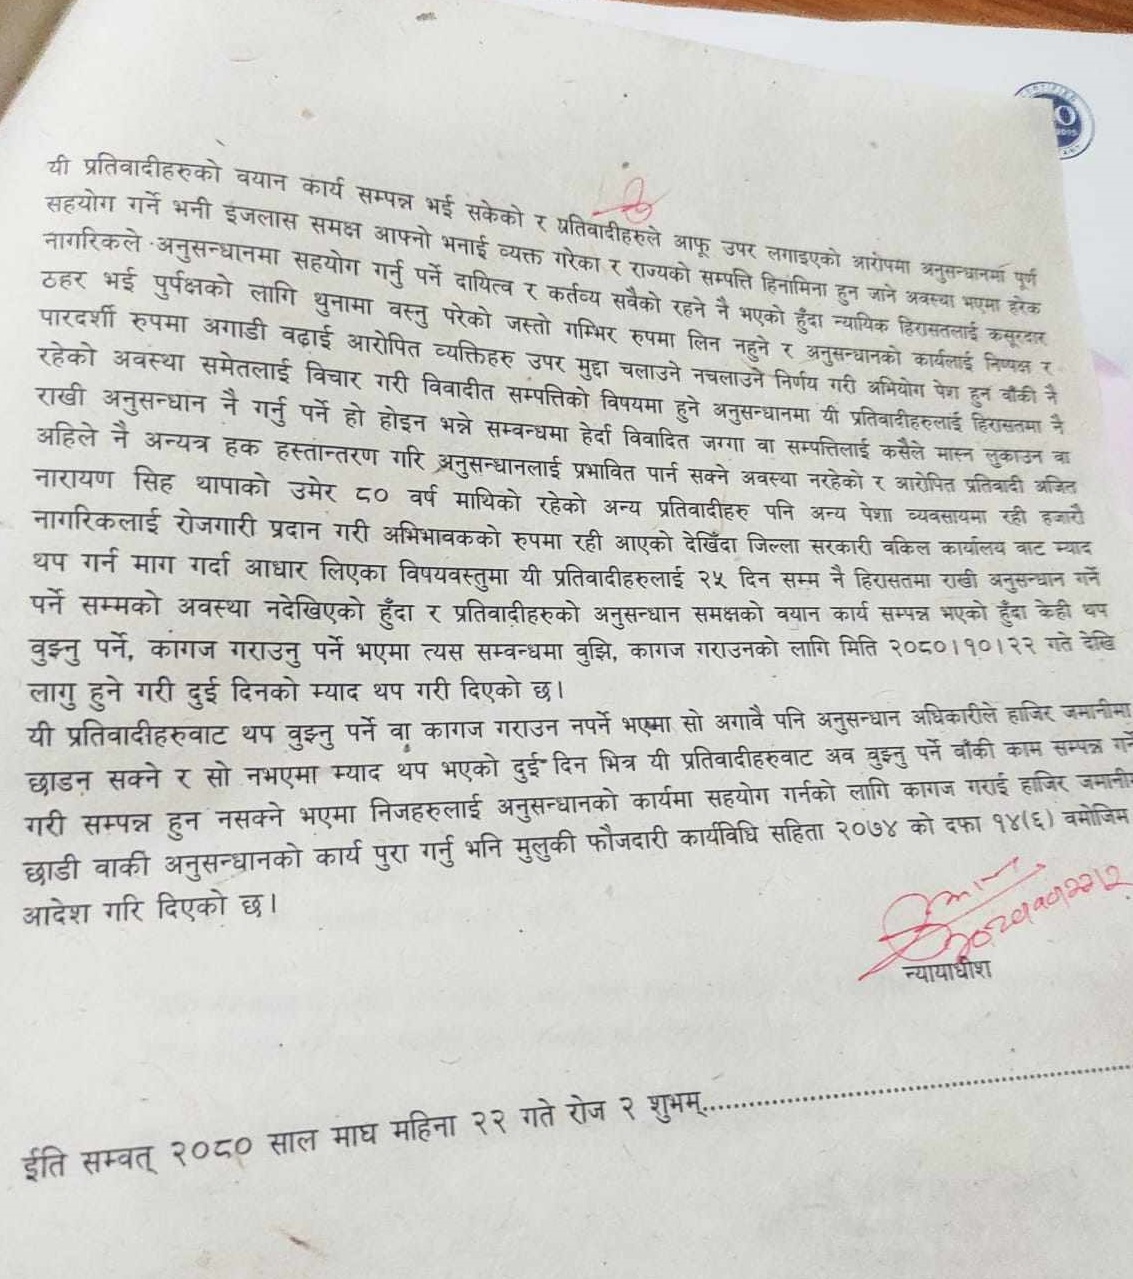 यी प्रतिवादीहरुको वयान कार्य सम्पन्न भई सकेको र प्रतिवादीहरुले आफू उपर लगाइएको आरोपमा अनुसन्धानमा पूर्ण
सहयोग गर्ने भनी इजलास समक्ष आफ्नो भनाई व्यक्त गरेका र राज्यको सम्पत्ति हिनामिना हुन जाने अवस्था भएमा हरेक
नागरिकले अनुसन्धानमा सहयोग गर्नु पर्ने दायित्व र कर्तव्य सवैको रहने नै भएको हुँदा न्यायिक हिरासतलाई कसूरदार
ठहर भई पुर्पक्षको लागि थुनामा वस्नु परेको जस्तो गम्भिर रुपमा लिन नहुने र अनुसन्धानको कार्यलाई निष्पक्ष र
पारदर्शी रुपमा अगाडी वढाई आरोपित व्यक्तिहरु उपर मुद्दा चलाउने नचलाउने निर्णय गरी अभियोग पेश हुन वाँकी नै
रहेको अवस्था समेतलाई विचार गरी विवादीत सम्पत्तिको विषयमा हुने अनुसन्धानमा यी प्रतिवादीहरुलाई हिरासतमा नै
राखी अनुसन्धान नै गर्नु पर्ने हो होइन भन्ने सम्वन्धमा हेर्दा विवादित जग्गा वा सम्पत्तिलाई कसैले मास्न लुकाउन वा
अहिले नै अन्यत्र हक हस्तान्तरण गरि अनुसन्धानलाई प्रभावित पार्न सक्ने अवस्था नरहेको र आरोपित प्रतिवादी अजित
नारायण सिह थापाको उमेर ८० वर्ष माथिको रहेको अन्य प्रतिवादीहरु पनि अन्य पेशा व्यवसायमा रही हजारौ
नागरिकलाई रोजगारी प्रदान गरी अभिभावकको रुपमा रही आएको देखिँदा जिल्ला सरकारी वकिल कार्यालय वाट म्याद
थप गर्न माग गर्दा आधार लिएका विषयवस्तुमा यी प्रतिवादीहरुलाई २५ दिन सम्म नै हिरासतमा राखी अनुसन्धान गर्ने
पर्ने सम्मको अवस्था नदेखिएको हुँदा र प्रतिवादीहरुको अनुसन्धान समक्षको वयान कार्य सम्पन्न भएको हुँदा केही थप
वुझ्नु पर्ने, कागज गराउनु पर्ने भएमा त्यस सम्वन्धमा वुझि, कागज गराउनको लागि मिति २०८०।१०।२२ गते देखि
लागु हुने गरी दुई दिनको म्याद थप गरी दिएको छ।
यी प्रतिवादीहरुवाट थप वुझ्नु पर्ने वा कागज गराउन नपर्ने भएमा सो अगावै पनि अनुसन्धान अधिकारीले हाजिर जमानीमा
छाडन सक्ने र सो नभएमा म्याद थप भएको दुई दिन भित्र यी प्रतिवादीहरुवाट अव वुझ्नु पर्ने वाँकी काम सम्पन्न गर्ने
गरी सम्पन्न हुन नसक्ने भएमा निजहरुलाई अनुसन्धानको कार्यमा सहयोग गर्नको लागि कागज गराई हाजिर
छाडी वाकी अनुसन्धानको कार्य पुरा गर्नु भनि मुलुकी फौजदारी कार्यविधि सहिता २०७४ को दफा १४(६) वमोजिम
आदेश गरि दिएको छ।
न्यायाधीश
ईति सम्वत् २०८० साल माघ महिना २२ गते रोज २ शुभम्..............................